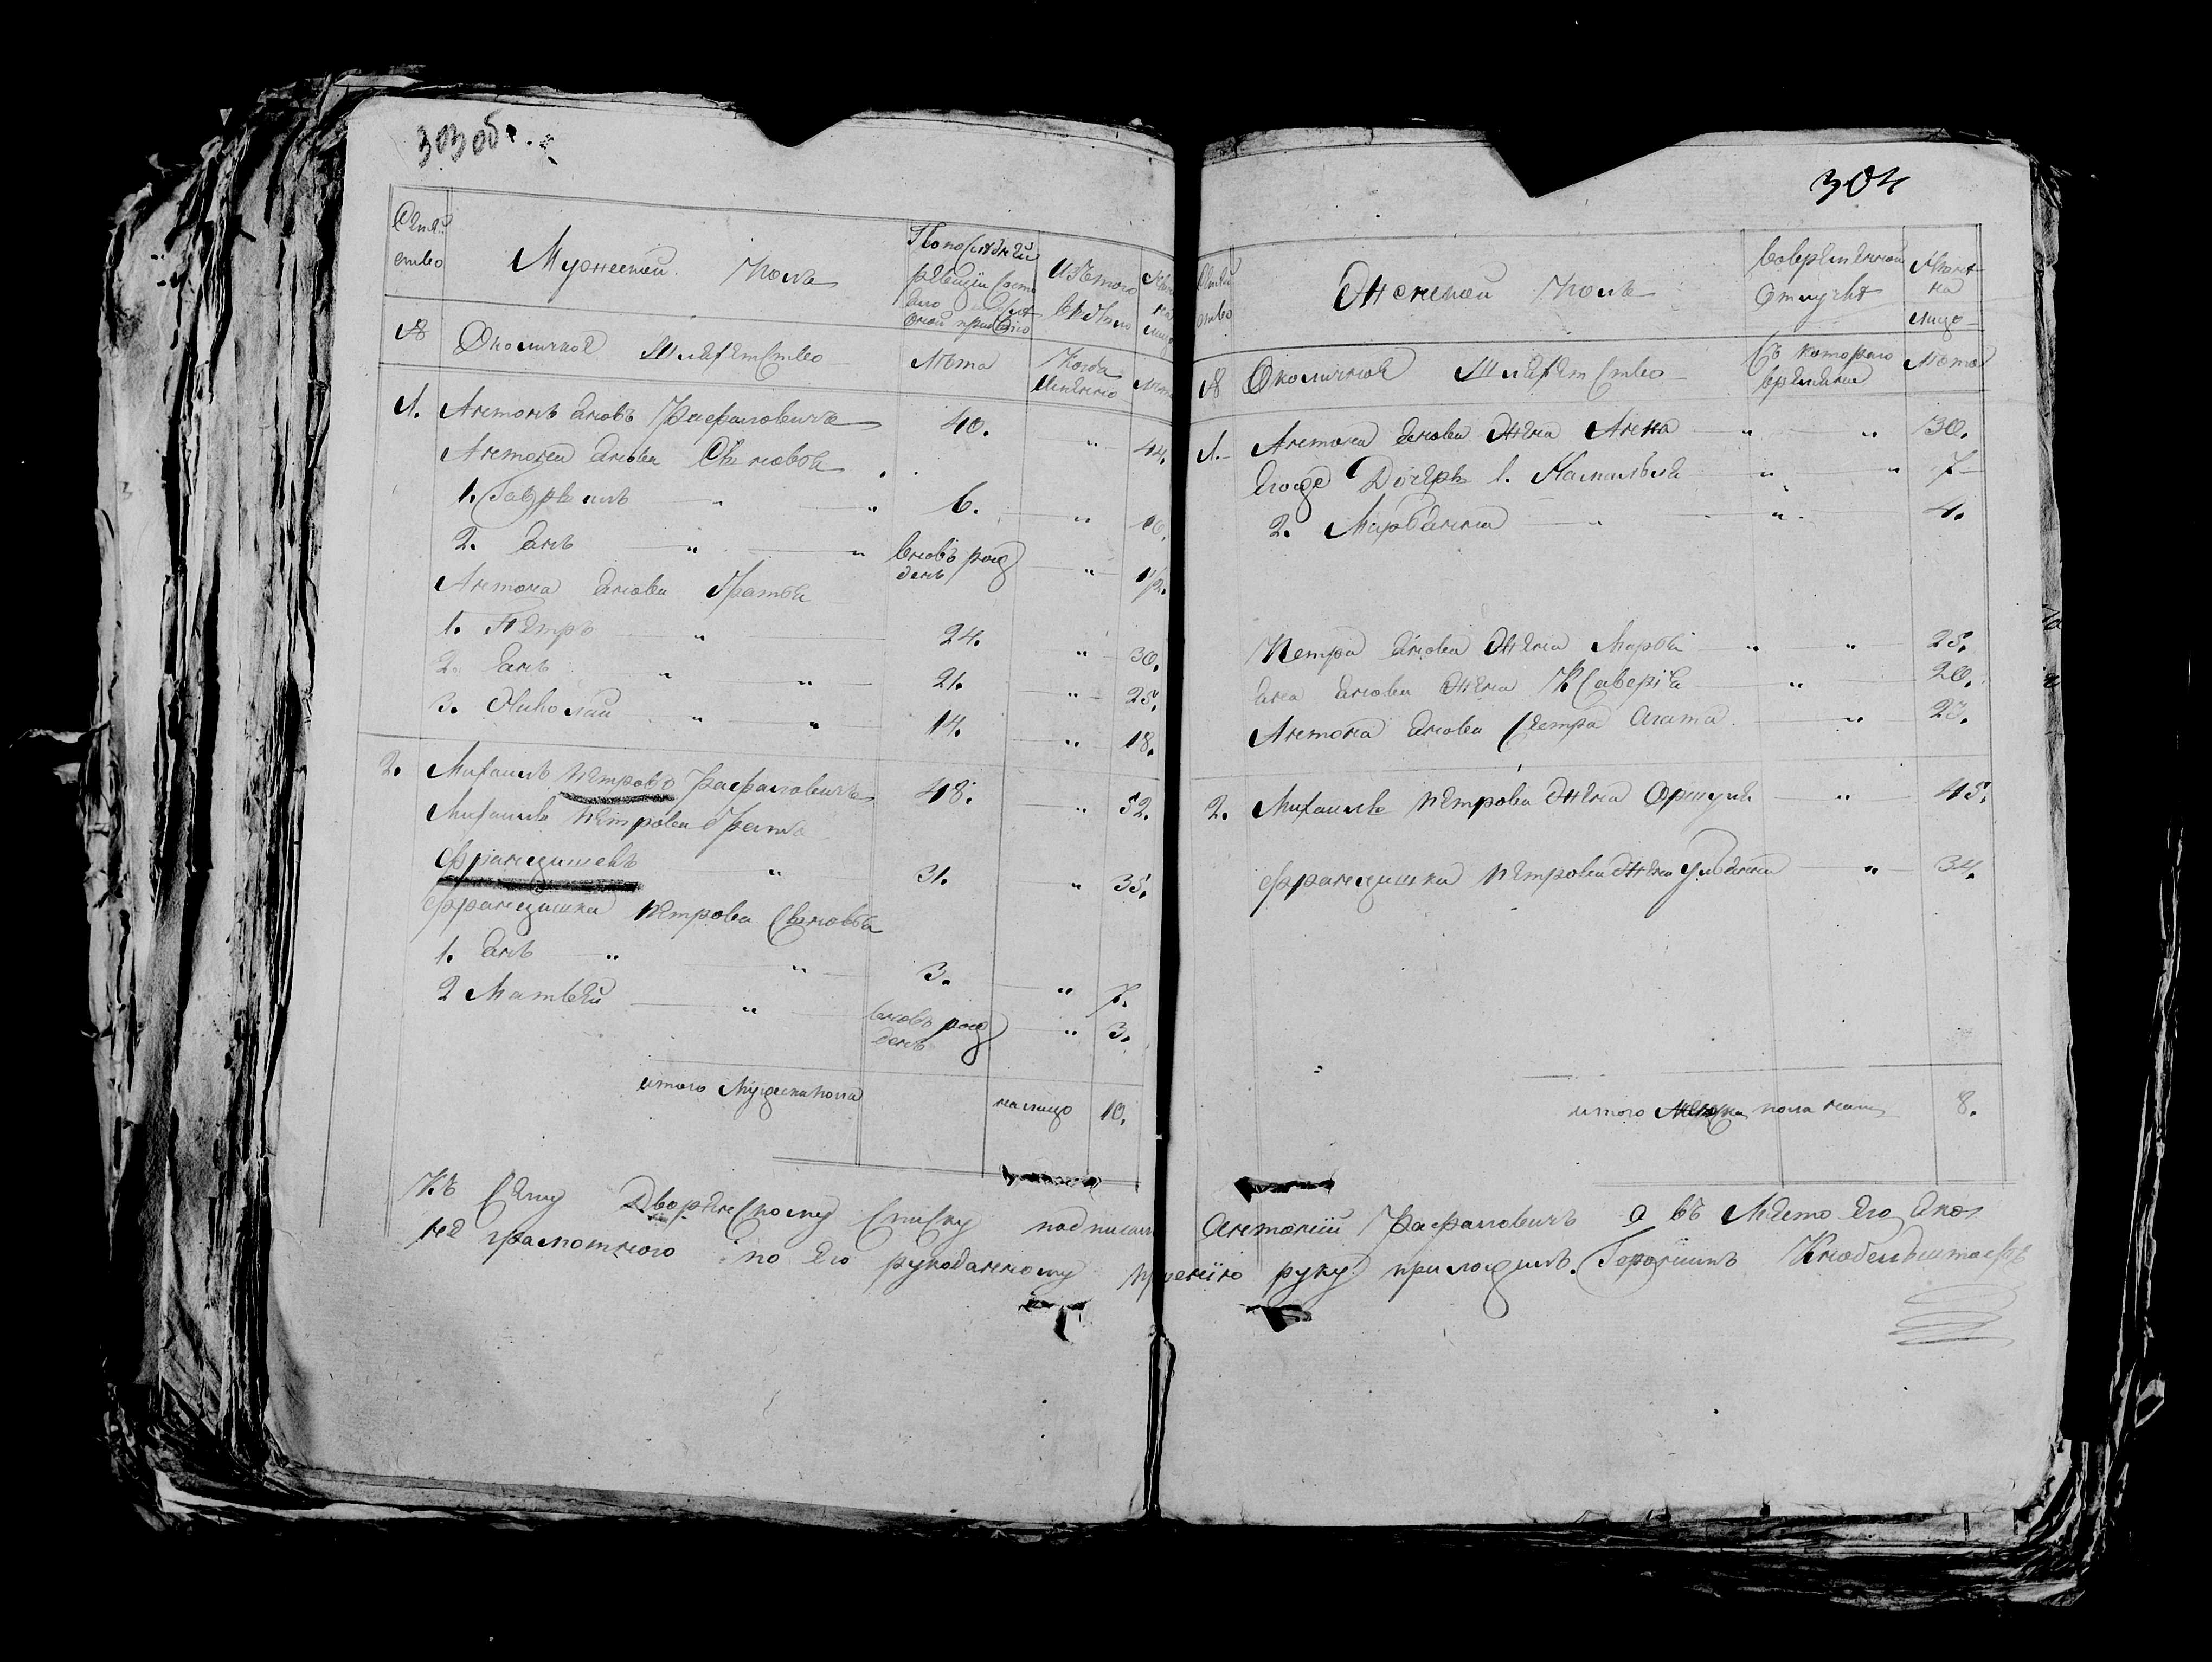 303об.
Семей
ство
Мужеской полъ
По последней
ревизiи состо
яло
Изъ того
выбыло
Ныне
на
лицо
№
Околичное Шляхетство
Лета
Когда
именно
Лета
1. Антонъ Яновъ Рафаловичъ 40. " 44.
Антона Янова Сыновья
1. Гаврыилъ " " 6. " 10.
2. Янъ " " вновь рож
денъ " 1/2.
Антона Янова Братья
1. Петръ " 24. " 30.
2. Янъ " " 21. " 25.
3. Николай " " 14. " 18.
2. Михаилъ Петровъ Рафаловичъ 48. " 52.
Михаила Петрова Братъ
Францишекъ " 31. " 35.
Францишка Петрова Сыновья
1. Янъ " " 3. " 7.
2 Матвей " вновь рож
денъ " 3.
итого Мужеска пола налицо 10.
304
Семей
ство
Женской полъ
Во временной
Отлучке
Ныне
на
лицо
№
Околичное Шляхетство
Съ котораго
времени
Лета
1. Антона Янова Жена Анна " " 30.
Егоже Дочери 1. Камилия " " 7
2. Марьянна " " 4.
Петра Янова Жена Марья " " 25.
Яна Янова Жена Ксаверiя " 20.
Антона Янова Сестра Агата " 23.
2. Михаила Петрова Жена Оршуля " 45.
Францишка Петрова Жена Ульянна " 34.
итого Женска пола нали 8.
Къ Сему Дворянскому Списку подписалъ Антонiй Рафаловичъ а въ Место Его яко
не грамотного по Его рукоданному прошенiю руку приложилъ. Геронимъ